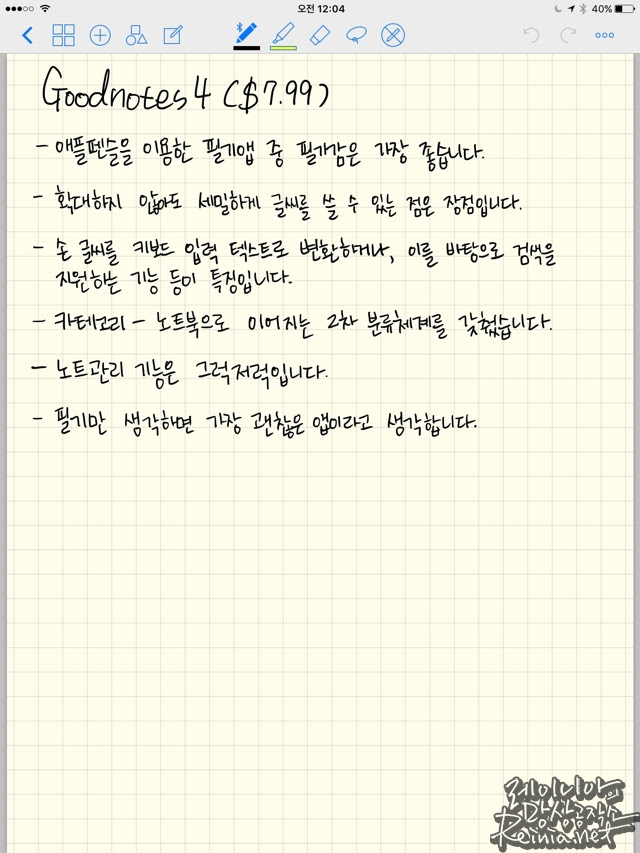 오전 12:04
40%
Goodnotes 4 ($7.99)
- 애플펜슬을 이용한 필기앱 중 필기감은 가장 좋습니다.
- 확대하지 않아도 세밀하게 글씨를 쓸 수 있는 점은 장점입니다.
- 손 글씨를 키보드 입력 텍스트로 변환하거나, 이를 바탕으로 검색을
지원하는 기능 등이 특징입니다.
- 카테고리 - 노트북으로 이어지는 2차 분류체계를 갖췄습니다.
- 노트관리 기능은 그럭저럭입니다.
- 필기만 생각하면 가장 괜찮은 앱이라고 생각합니다.
레이니아의
망상공작소
Reinia.net